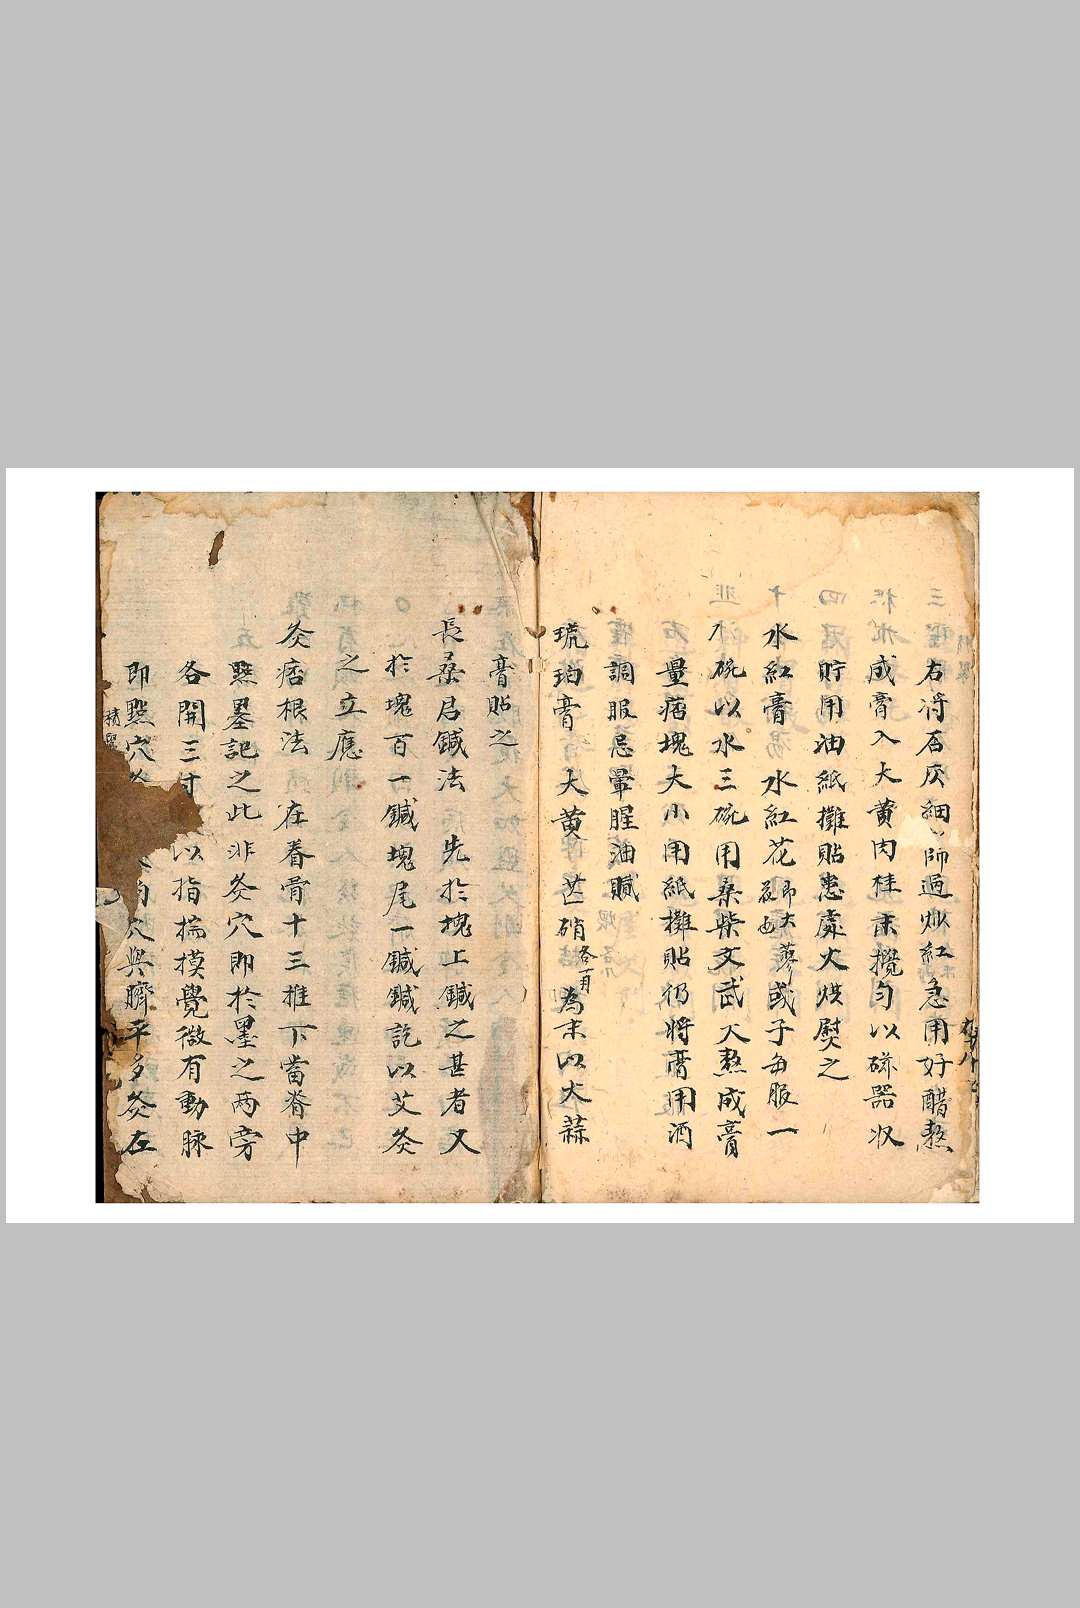 右將石灰細篩過炒紅急用好醋熬
成膏入大黃肉桂末攪勻以磁器收
貯用油紙攤貼患處火烘熨之
水紅膏 水紅花 即大蓼 或子每服一
碗以水三碗用桑柴文武火熬成膏
量痞塊大小用紙攤貼仍將膏用酒
調服忌暈腥油膩
琥珀膏 大黃 芒硝 各一両 為末以大蒜
膏貼之
長桑君鍼法 先於塊上鍼之甚者又
於塊首一鍼塊尾一鍼鍼訖以艾灸
之立應
灸痞根法 在脊骨十三椎下當脊中
點墨記之此非灸穴即於墨之両旁
各開三寸以指揣摸覺微有動脉
即點穴
穴與臍平多灸左
積聚